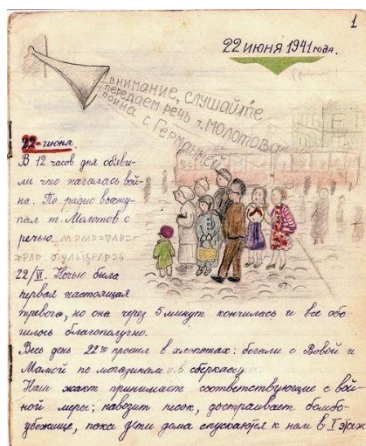 1
22 июня 1941 года.
Внимание, слушайте
передаем речь т. Молотова
война с Германией
22 июня
В 12 часов дня объяви-
ли что началась вой-
на. По радио высту-
пал т. Молотов с
речью.
22/VI. Ночью была
первая настоящая
тревога, но она через 5 минут кончилась и все обо
шлось благополучно.
Весь день 22го прошел в хлопотах: бегали с Вовой и
Мамой по магазинам и в сберкассу
Наш жакт принимает соответствующие с вой-
ной меры; навозит песок, достраивает бомбо-
убежище, пока дети дома спускаются к нам в I этаж